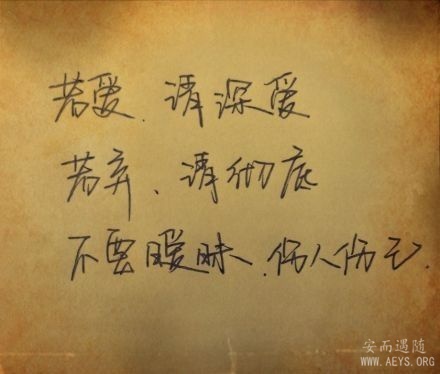 若爱.请深爱
若弃、请彻底
不要暧昧、伤人伤己.
安而遇随
WWW.AEYS.ORG